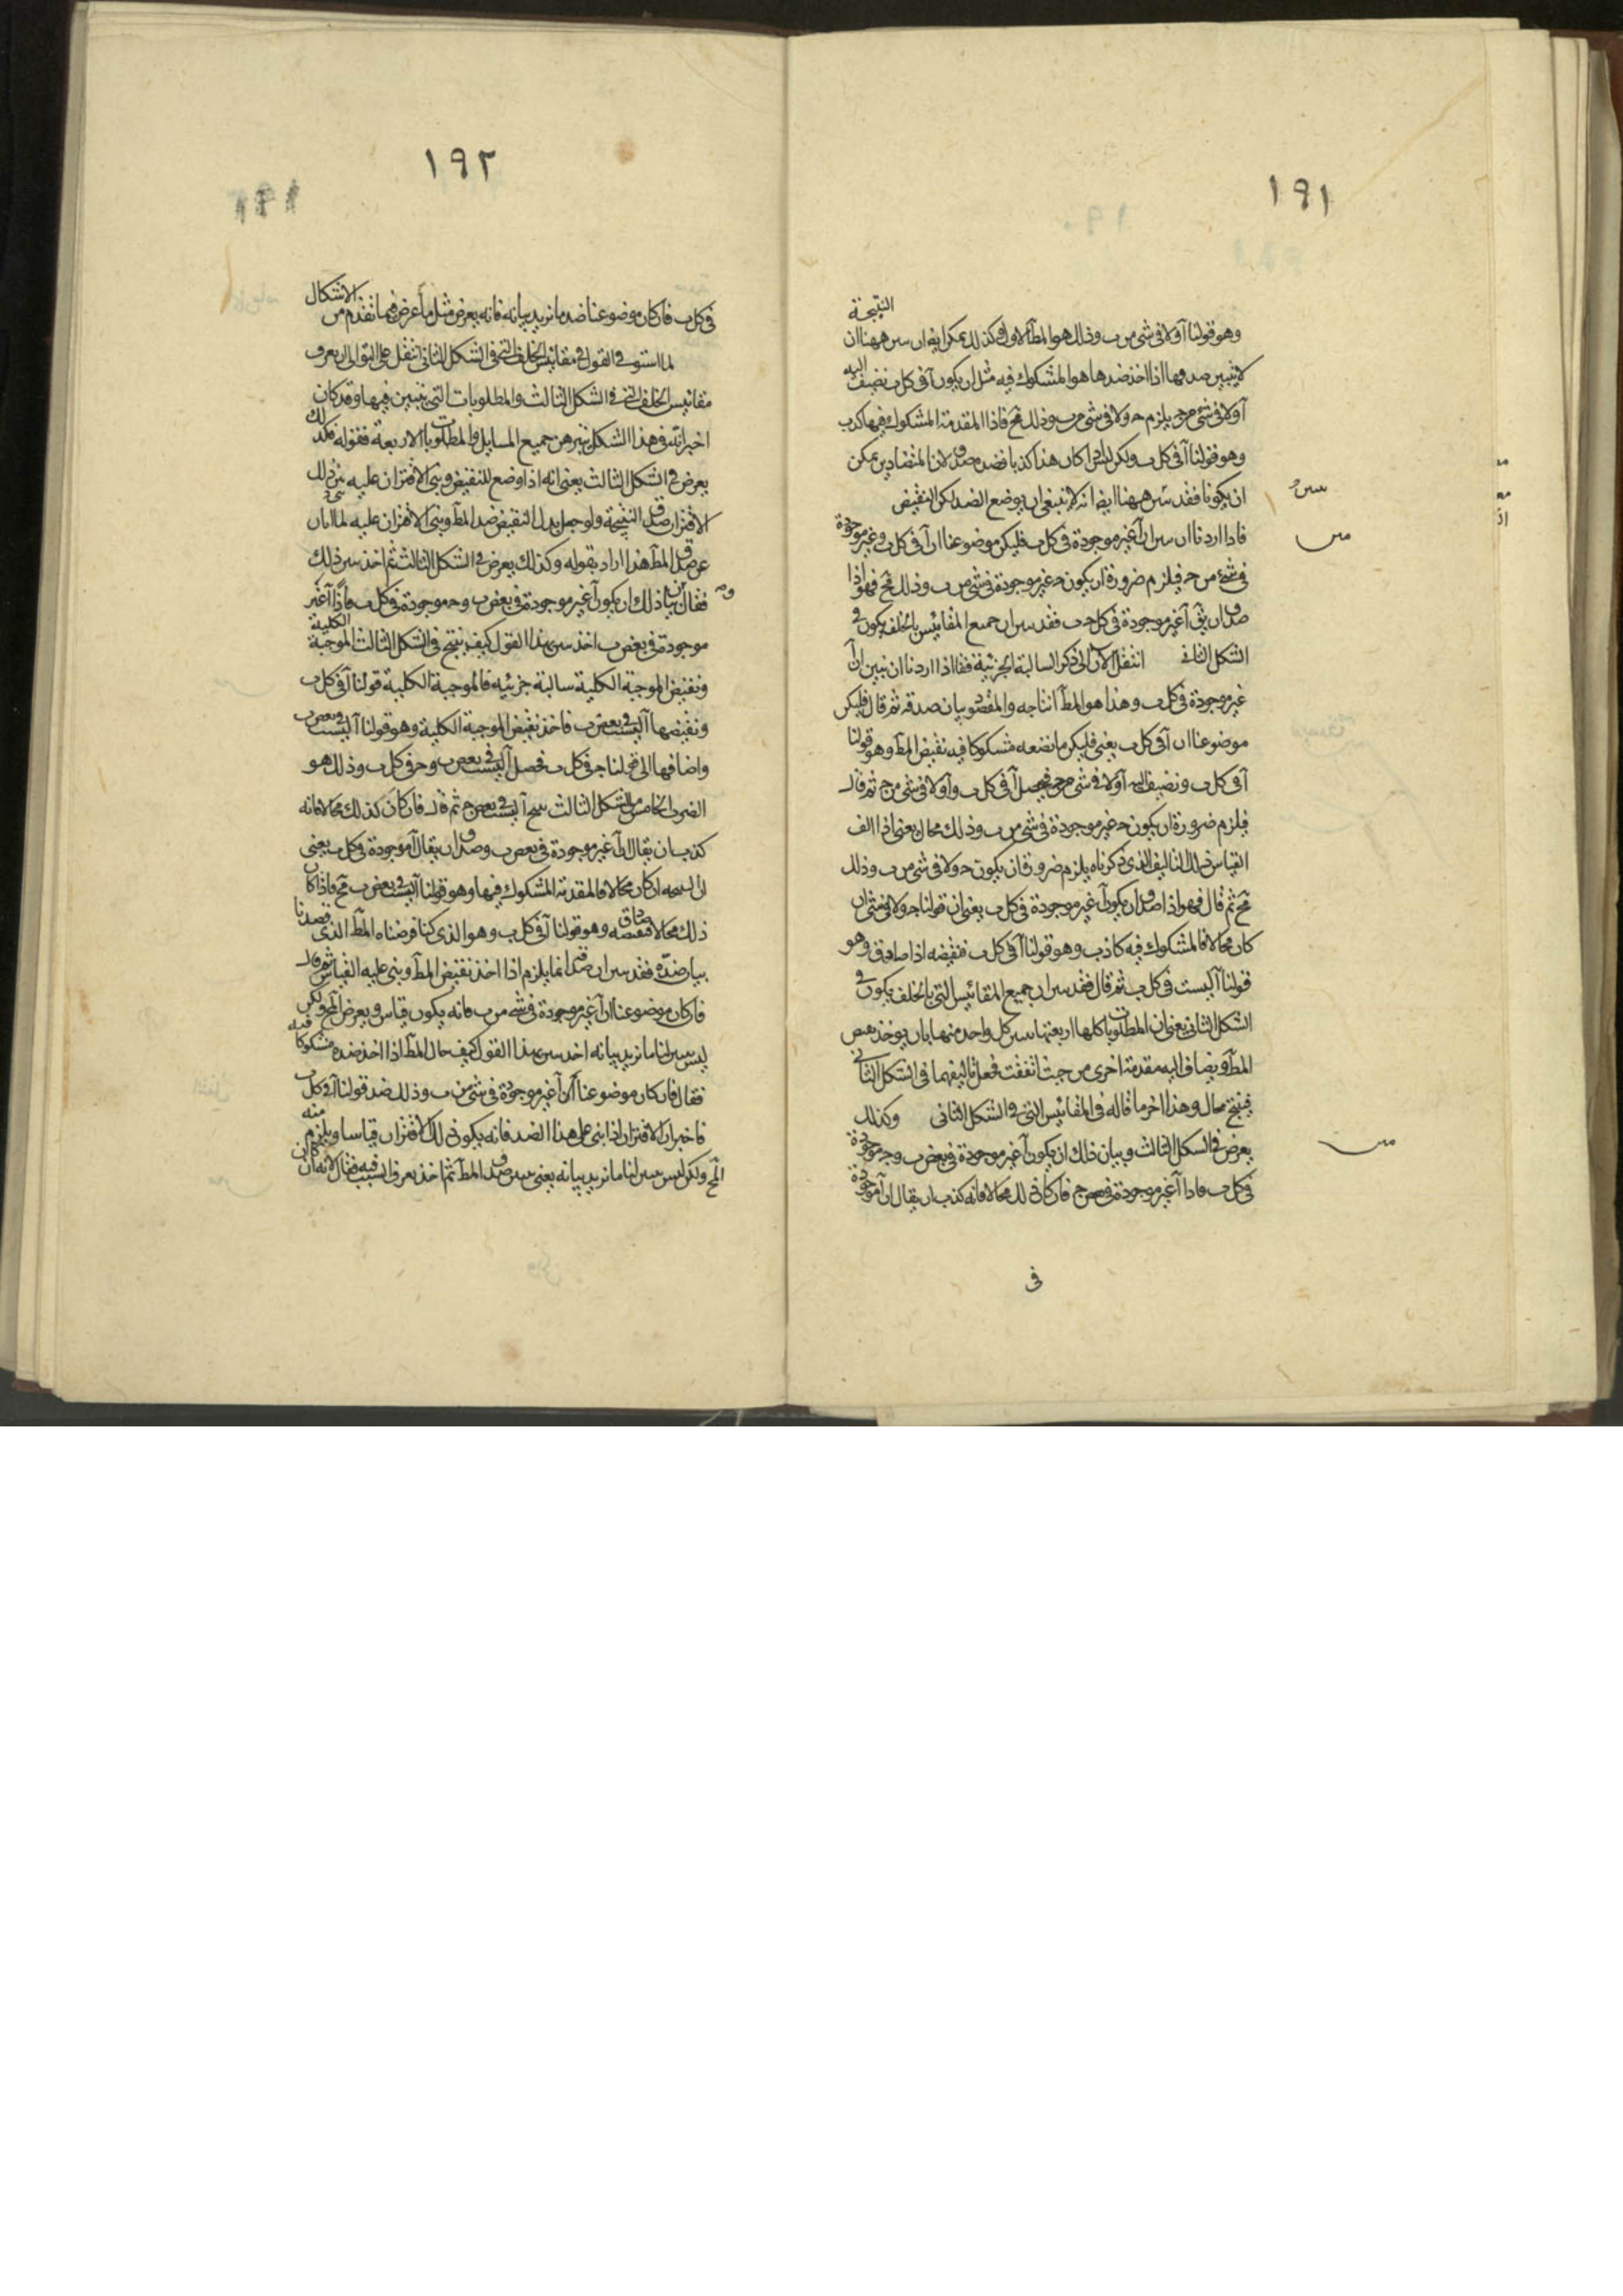 ١٩١
النتيجة
وهو قولنا آ ولا في شى من ب وذلك هو المط الاول وكذلك يمكن ايضا ان سن ههنا ان
لا يتبين صدقها اذا اخذ ضدها هو المشكوك فيه مثل ان يكون آ في كل ب نضيف اليه
آ ولا في شى من ج يلزم ح ولا في شى من ب وذلك مح فاذا المقدمة المشكوك فيها كذب
وهو قولنا آ في كل ب ولكن ليس اذا كان هذا كذبا فضده صدق لان المتضادين يمكن
ان يكونا فقد سن ههنا ايضا انه لا ينبغي ان يوضع الضد لكن النقيض
فاذا اردنا ان سن ان آ غير موجودة في كل ب فليكن موضوعنا ان آ في كل ب وغير موجودة
في شى من ح فيلزم ضرورة ان يكون ح غير موجودة في شى من ب وذلك مح فهو اذا
صدق ان يق آ غير موجودة في كل ب فقد سن ان جميع المقائيس بالخلف يكون في
الشكل الثاني انتقل الان الى ذكر السالبة الجزئية فقا اذا اردنا ان نبين ان آ
غير موجودة في كل ب وهذا هو المط انتاجه والمقصود بيان صدقه ثم قال فليكن
موضوعنا ان آ في كل ب يعنى فليكن ما نضعه مشكوكا فيه نقيض المط وهو قولنا
آ في كل ب ونضيف اليه آ ولا في شى من ج فيحصل آ في كل ب وآ ولا في شى من ج ثم قال
فيلزم ضرورة ان يكون ح غير موجودة في شى من ب وذلك محال يعنى اذا الف
القياس ذلك التاليف الذي ذكرناه يلزم ضرورة ان يكون ح ولا في شى من ب وذلك
مح ثم قال فهو اذا صدق ان يكون آ غير موجودة في كل ب يعنى ان قولنا ح ولا في شى ان
كان محالا فالمشكوك فيه كاذب وهو قولنا آ في كل ب فنقيضه اذا صادق وهو
قولنا آ ليست في كل ب ثم قال فقد سن ان جميع المقائيس التى بالخلف يكون في
الشكل الثاني يعنى ان المطلوبات كلها اربعتها سن كل واحد منها بان يوخذ نقيض
المط ويضاف اليه مقدمة اخرى من حيث اتفقت فعل تاليفهما في الشكل الثاني
فينتج محال وهذا اخر ما قاله في المقائيس التى في الشكل الثاني وكذلك
يعرض في الشكل الثالث وبيان ذلك ان يكون آ غير موجودة في بعض ب وج موجودة
في كل ب فاذا آ غير موجودة في بعض ج فان كان ذلك محالا فانه كذب ان يقال ان آ موجودة
في
١٩٢
في كل ب فان كان موضوعنا ضد ما نريد بيانه فانه يعرض مثل ما عرض فيما تقدم من الاشكال
لما استوفى القول في مقائيس الخلف التى في الشكل الثاني انتقل على التوالى الى ان يعرف
مقائيس الخلف التى في الشكل الثالث والمطلوبات التى تتبين فيها وقد كان
اخبر انه في هذا الشكل تبرهن جميع المسايل والمطلوبات الاربعة فقوله وكذلك
يعرض في الشكل الثالث يعنى انه اذا وضع للنقيض وبنى الاقتران عليه بين ذلك
الاقتران صدق النتيجة ولو جعل بدل النقيض ضد المط وبنى الاقتران عليه لما ابان
عن صدق المط هذا اراد بقوله وكذلك يعرض في الشكل الثالث ثم اخذ سن ذلك
فقال بيان ذلك وان يكون آ غير موجودة في بعض ب وح موجودة في كل ب فاذا آ غير
موجودة في بعض ب اخذ سن بهذا القول كيف ينتج في الشكل الثالث الموجبة الكلية
ونقيض الموجبة الكلية سالبة جزئيه فالموجبة الكلية قولنا آ في كل ب
ونقيضها آ ليست في بعض ب فاخذ نقيض الموجبة الكلية وهو قولنا آ ليست في بعض ب
واضافها الى قولنا ج في كل ب فحصل آ ليست في بعض ب وح في كل ب وذلك هو
الضرب الخامس من الشكل الثالث ينتج آ ليست في بعض ج ثم قال فان كان كذلك محالا فانه
كذب ان يقال ان آ غير موجودة في بعض ب وصدق ان يقال آ موجودة في كل ب يعنى
ان النتيجه ان كان محالا فالمقدمة المشكوك فيها وهو قولنا آ ليست في بعض ب مح فاذا كان
ذلك محالا فنقيضه صادق وهو قولنا آ في كل ب وهو الذى كنا فرضناه المط الذى قصدنا
بيان ضده فقد سن ان صدق انما يلزم اذا اخذ نقيض المط وبنى عليه القياس ثم قال
فان كان موضوعنا ان آ غير موجودة في شى من ب فانه يكون قياس ويعرض المح ولكن
ليس سن لنا ما نريد بيانه اخذ سن بهذا القول كيف حال المط اذا اخذ ضده مشكوكا فيه
فقال فان كان موضوعنا ان آ غير موجودة في شى من ب وذلك ضد قولنا آ في كل ب
فاخبر ان الاقتران اذا بنى على هذا الضد فانه يكون ذلك الاقتران قياسا ويلزم منه
المح ولكن ليس سن لنا ما نريد بيانه يعنى سن صدق المط ثم اخذ يعرف السبب فيه فقال لانه ان كان